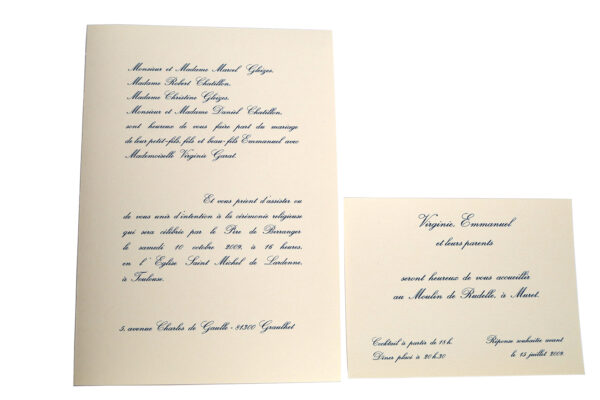 Monsieur et Madame Marcel Gleizes,
Madame Robert Chatillon,
Madame Christine Gleizes,
Monsieur et Madame Daniel Chatillon,
sont heureux de vous faire part du mariage
de leur petit-fils, fils et beau-fils Emmanuel avec
Mademoiselle Virginie Garat.
Et vous prient d'assister ou
de vous unir d'intention à la cérémonie religieuse
qui sera célébrée par le Père de Berranger
le samedi 10 octobre 2009, à 16 heures,
en l'Eglise Saint Michel de Lardenne,
à Toulouse.
5, avenue Charles de Gaulle - 81300 Graulhet
Virginie, Emmanuel
et leurs parents
seront heureux de vous accueillir
au Moulin de Rudelle, à Muret.
Cocktail à partir de 18h.
Dîner placé à 20h30
Réponse souhaitée avant
le 15 juillet 2009.